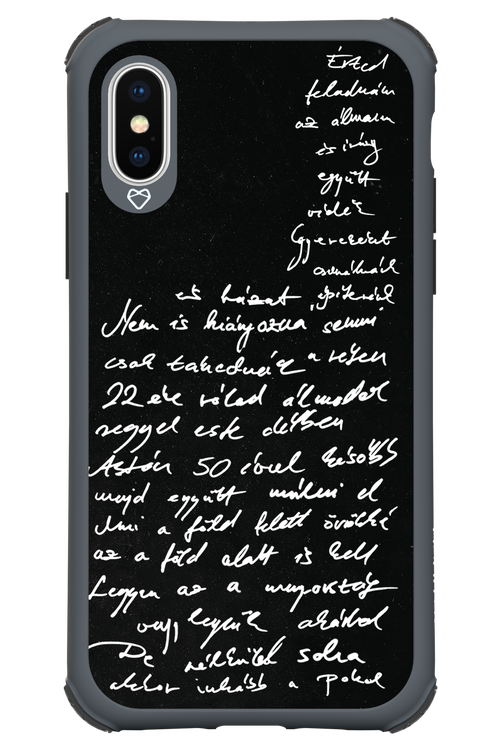 Érted
feladnám
az álmaim
és így
együtt
vidék
Gyerekeket
csinálnánk
és házat építenénk
Nem is hiányozna semmi
csak takednék a réten
22 éve rólad álmodok
reggel este délben
Aztán 50 évvel később
majd együtt múlni el
Ami a föld felett örökké
az a föld alatt is kell
Legyen az a mennyország
vagy legyünk akárhol
De nélküled soha
akkor inkább a pokol